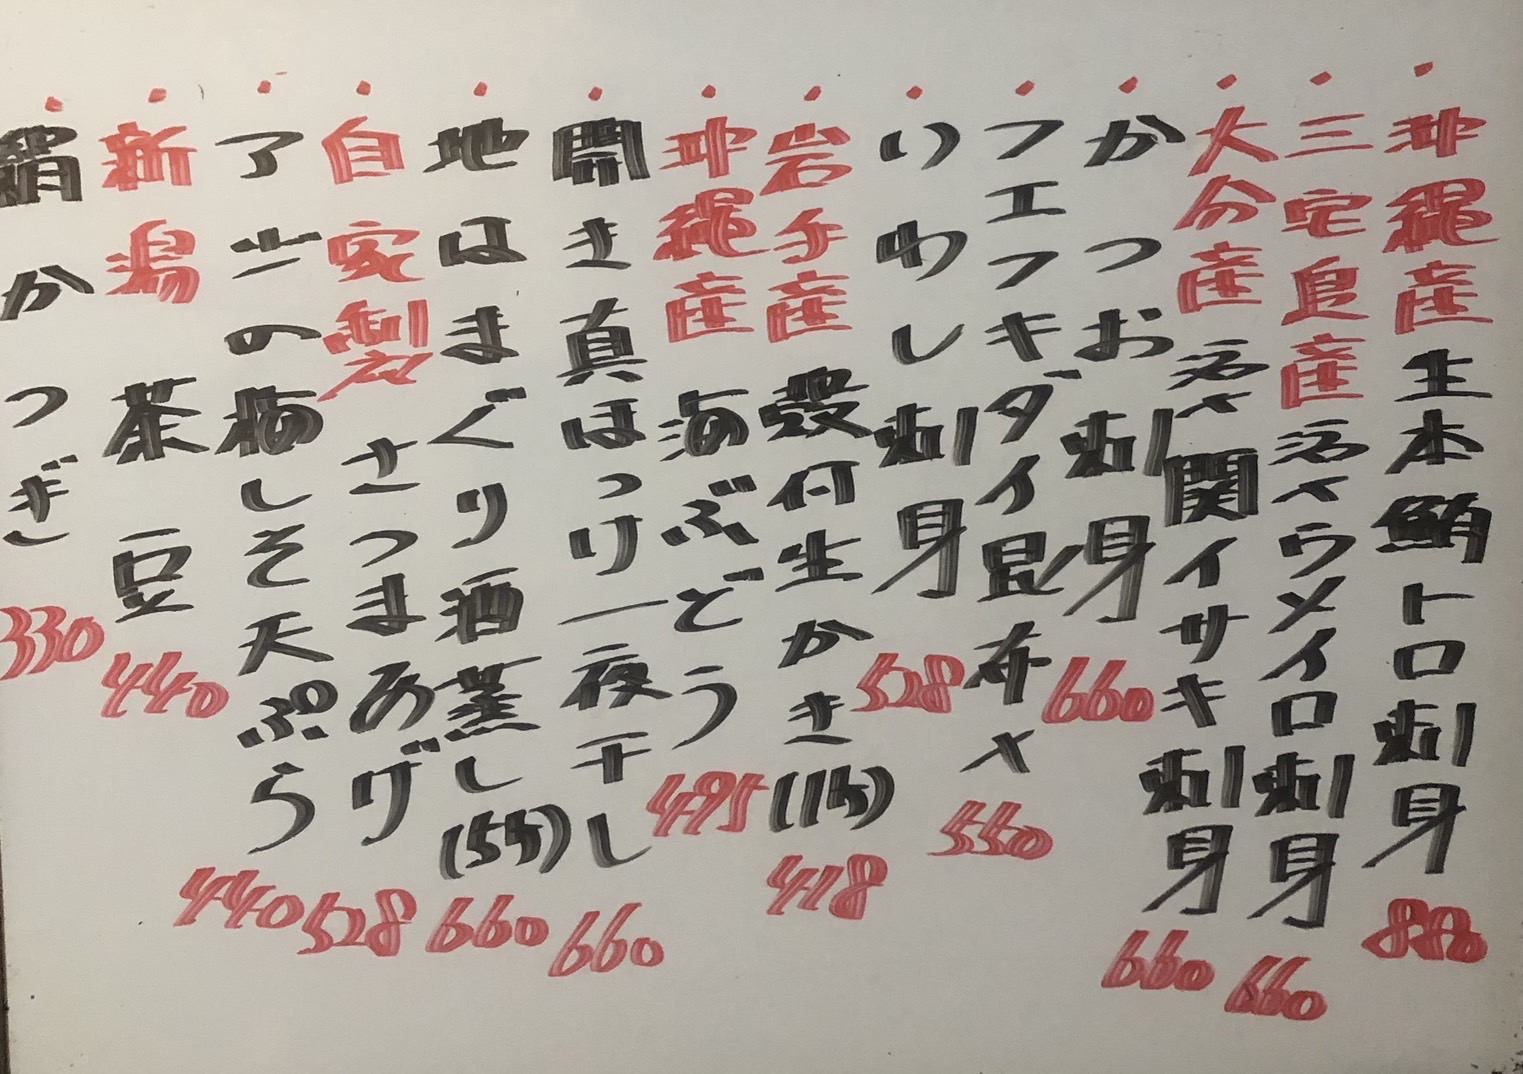 沖縄産生本鮪トロ刺身 880
三宅島産活〆ウメイロ刺身 660
大分産活〆関イサキ刺身 660
かつお刺身 660
フエフキダイ昆布〆 550
いわし刺身 528
岩手産殻付生かき(1ヶ) 418
沖縄産海ぶどう 495
開き真ほっけ一夜干し 660
地はまぐり酒蒸し(5ヶ) 660
自家製さつまあげ 528
アジの梅しそ天ぷら 440
新潟茶豆 440
絹かつぎ 330